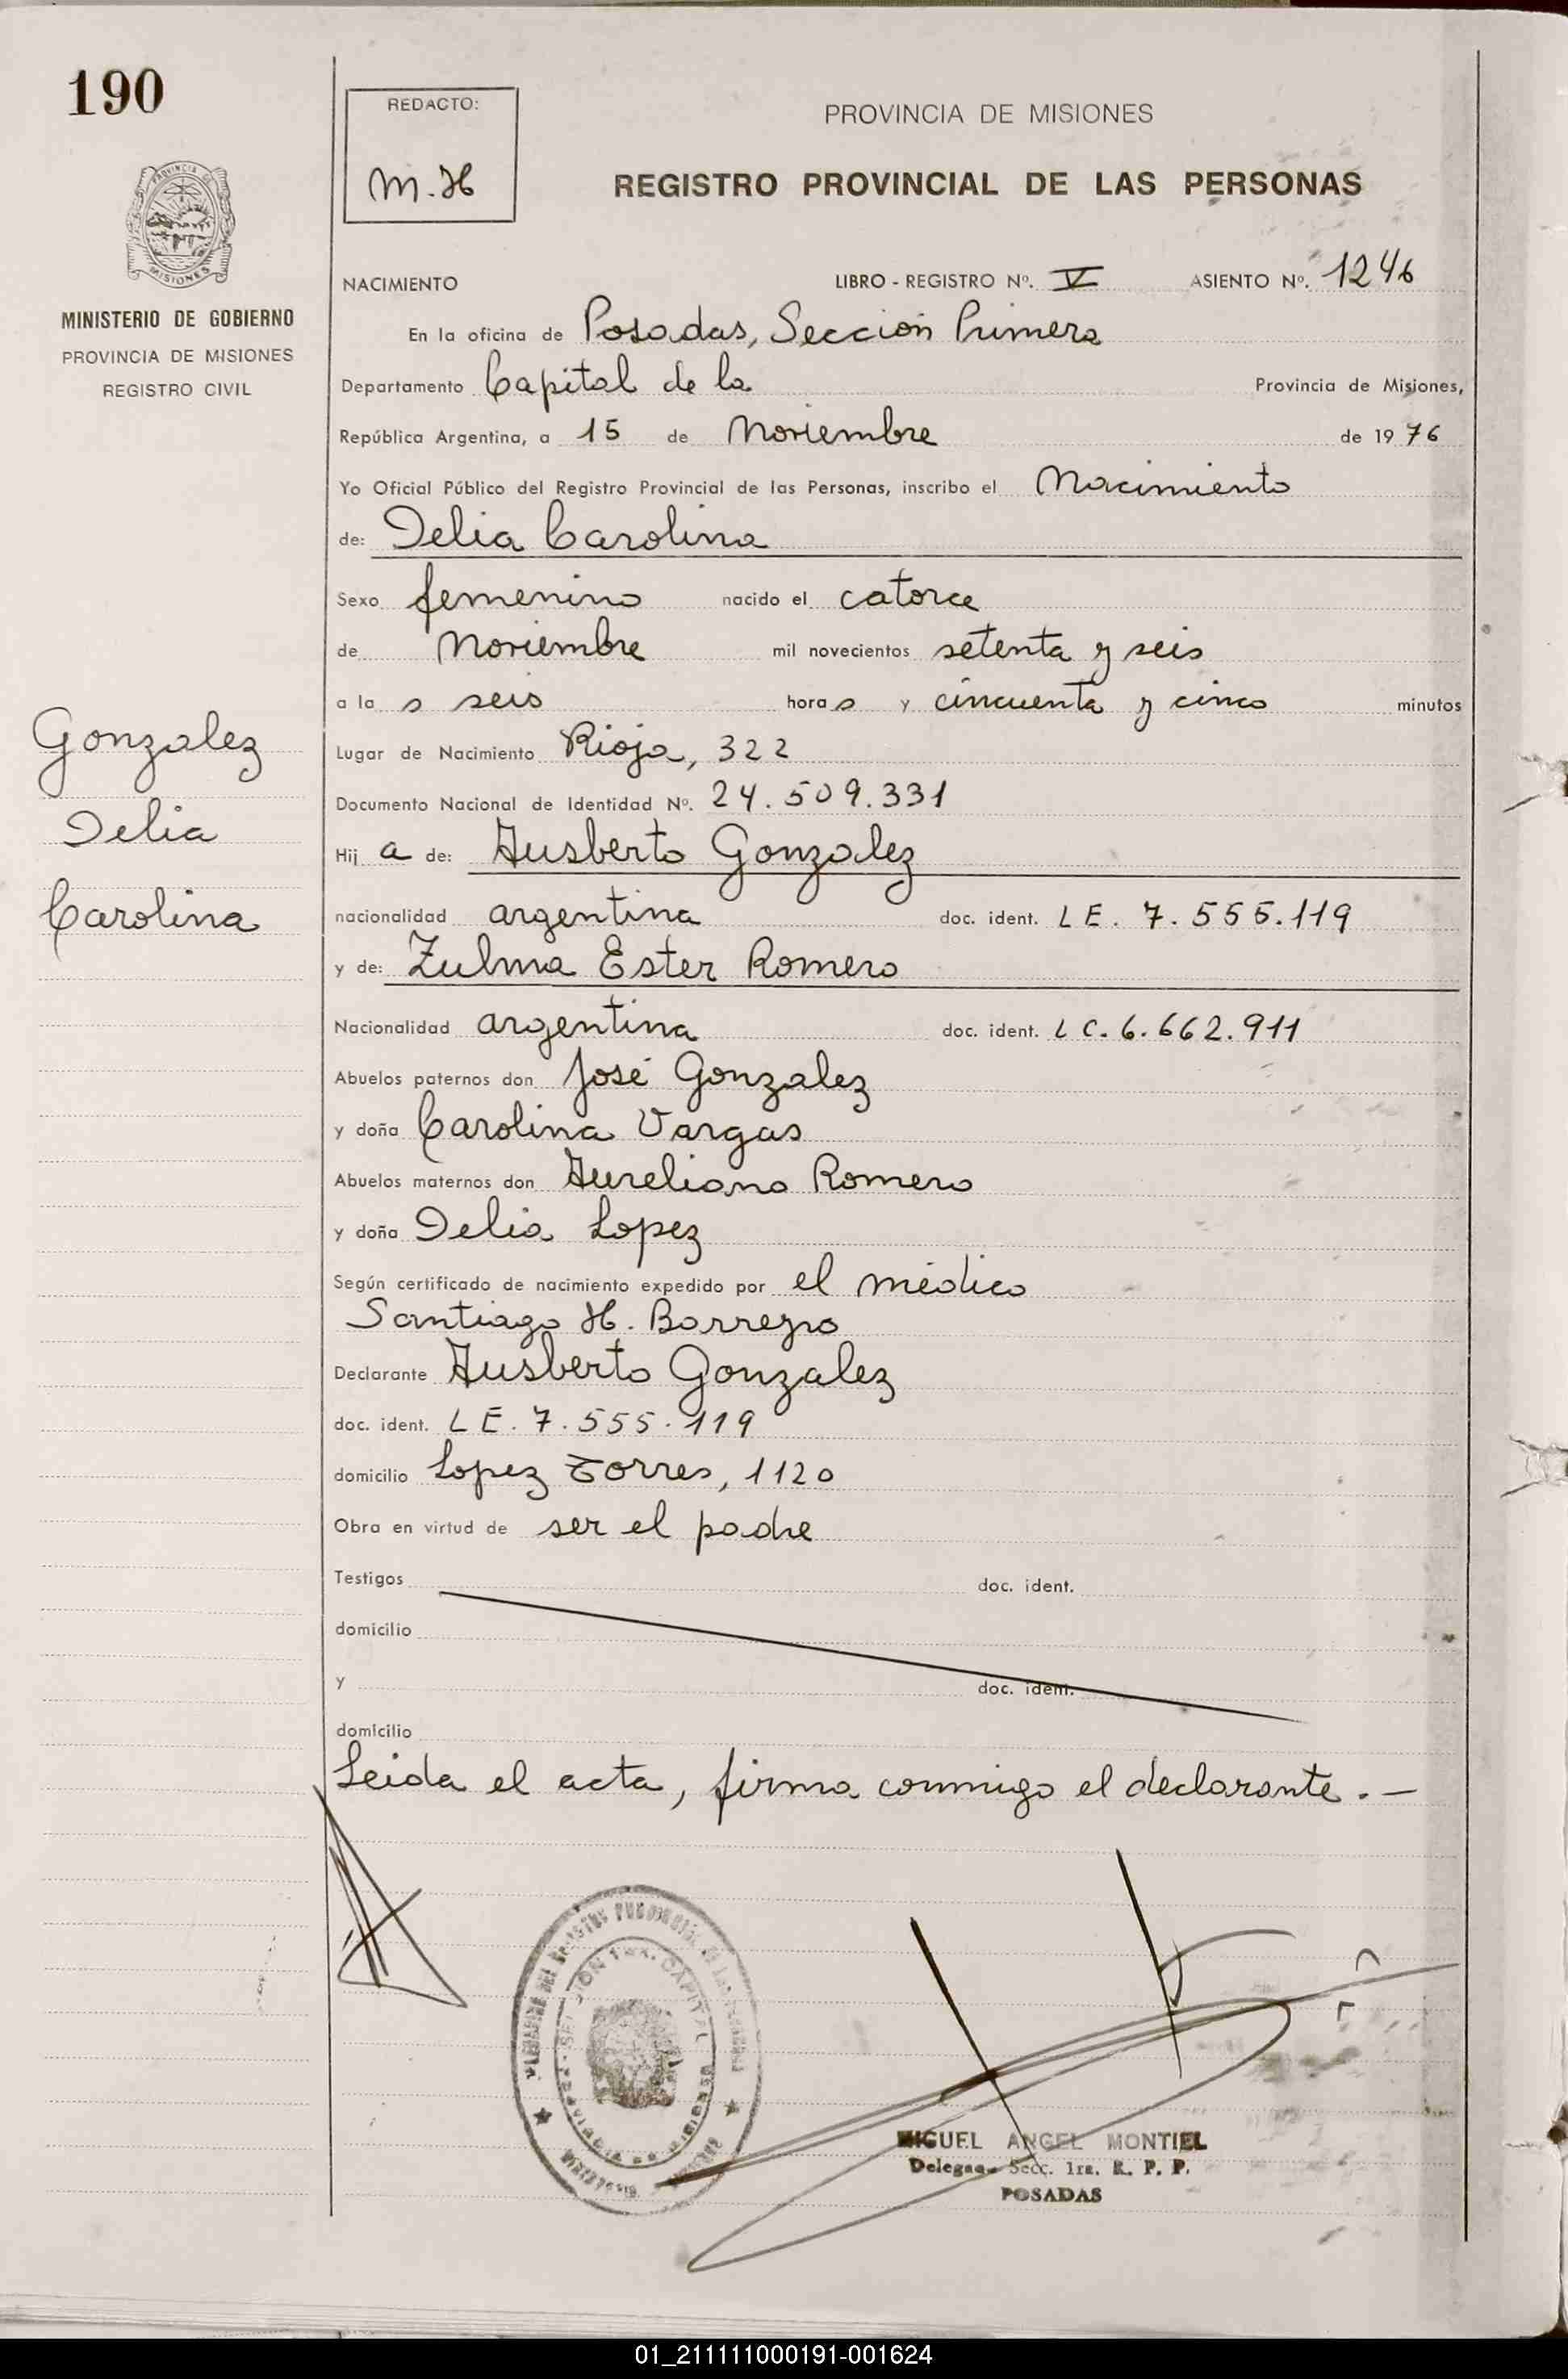 190
REDACTO:
M.H
PROVINCIA DE MISIONES
REGISTRO PROVINCIAL DE LAS PERSONAS
PROVINCIA DE
MISIONES
MINISTERIO DE GOBIERNO
PROVINCIA DE MISIONES
REGISTRO CIVIL
NACIMIENTO LIBRO - REGISTRO Nº. V ASIENTO Nº. 1246
En la oficina de Posadas, Sección Primera
Departamento Capital de la Provincia de Misiones,
República Argentina, a 15 de Noviembre de 1976
Yo Oficial Público del Registro Provincial de las Personas, inscribo el Nacimiento
de: Delia Carolina
Sexo femenino nacido el catorce
de Noviembre mil novecientos setenta y seis
a las seis horas y cincuenta y cinco minutos
Gonzalez
Delia
Carolina
Lugar de Nacimiento Rioja, 322
Documento Nacional de Identidad Nº. 24.509.331
Hija de: Ausberto Gonzalez
nacionalidad argentina doc. ident. LE. 7.555.119
y de: Zulma Ester Romero
Nacionalidad argentina doc. ident. LC. 6.662.911
Abuelos paternos don José Gonzalez
y doña Carolina Vargas
Abuelos maternos don Aureliano Romero
y doña Delia Lopez
Según certificado de nacimiento expedido por el médico
Santiago H. Borrego
Declarante Ausberto Gonzalez
doc. ident. LE. 7.555.119
domicilio Lopez Torres, 1120
Obra en virtud de ser el padre
Testigos doc. ident.
domicilio
y doc. ident.
domicilio
Leida el acta, firma conmigo el declarante.—
MIGUEL ANGEL MONTIEL
Delegado Secc. 1ra. R. P. P.
POSADAS
01_211111000191-001624